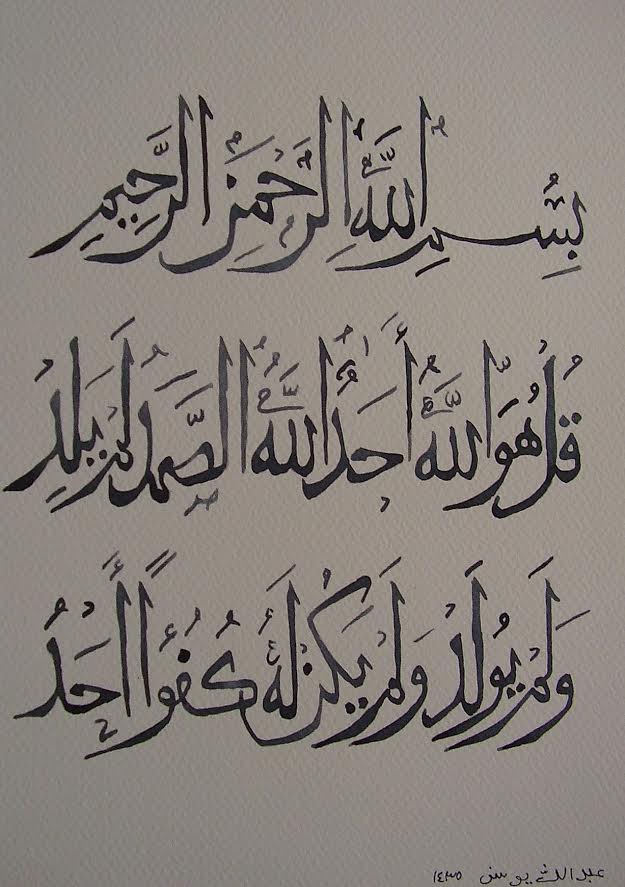 بِسْمِ اللَّهِ الرَّحْمَنِ الرَّحِيمِ
قُلْ هُوَ اللَّهُ أَحَدٌ اللَّهُ الصَّمَدُ لَمْ يَلِدْ
وَلَمْ يُولَدْ وَلَمْ يَكُنْ لَهُ كُفُؤًا أَحَدٌ
يونس ١٤٣٥